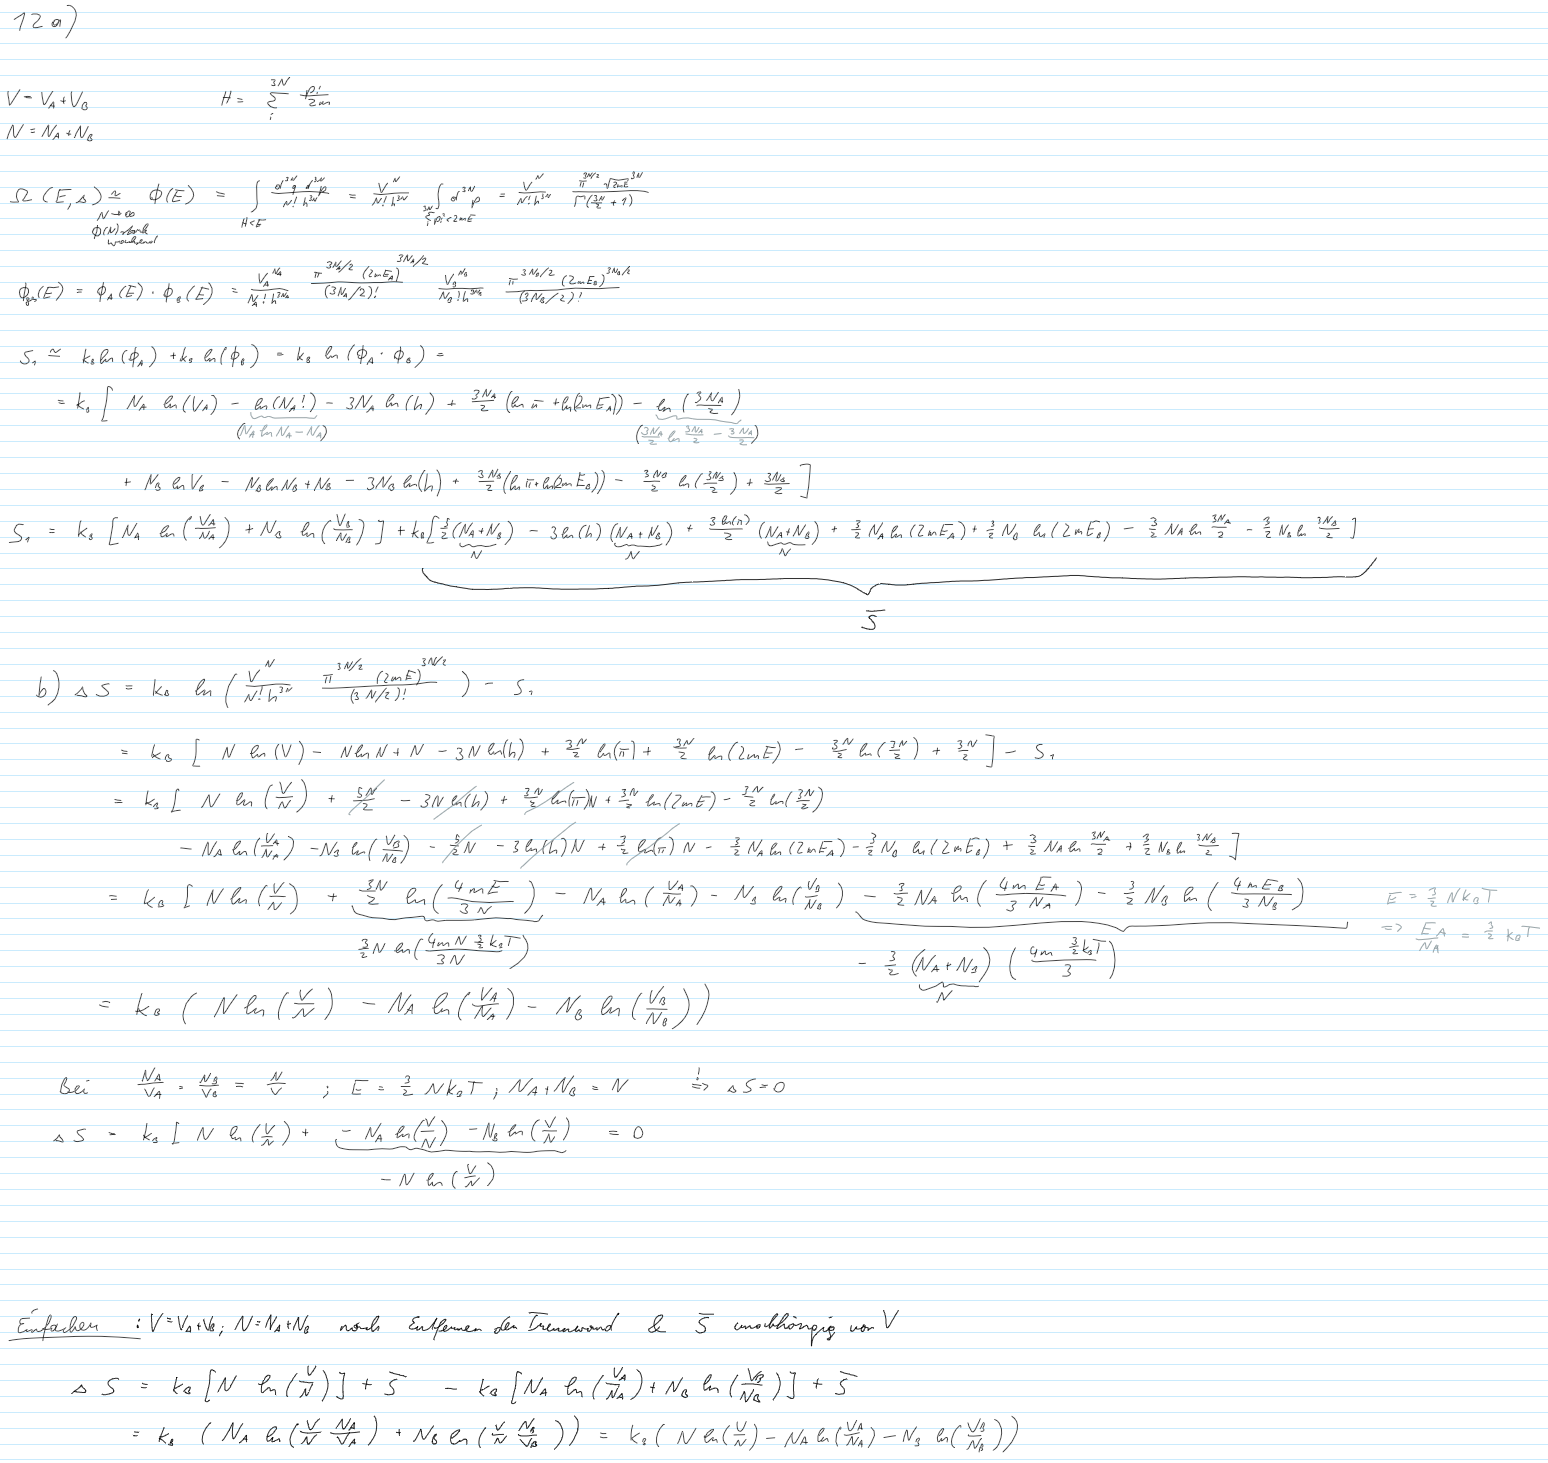 12a)
V = V_A + V_B    H = Σ_i^{3N} p_i²/2m
N = N_A + N_B
Ω(E,s) ≃_{N→∞} ϕ(E) = ∫_{H<E} d^{3N}q d^{3N}p / N! h^{3N} = V^N / N! h^{3N} ∫_{Σ_i^{3N} p_i² < 2mE} d^{3N}p = V^N / N! h^{3N} π^{3N/2} √(2mE)^{3N} / Γ(3N/2 + 1)
ϕ(N) stark
wachsend
ϕ_ges(E) = ϕ_A(E) · ϕ_B(E) = V_A^{N_A} / N_A! h^{3N_A} π^{3N_A/2} (2mE_A)^{3N_A/2} / (3N_A/2)! V_B^{N_B} / N_B! h^{3N_B} π^{3N_B/2} (2mE_B)^{3N_B/2} / (3N_B/2)!
S_1 ≃ k_B ln(ϕ_A) + k_B ln(ϕ_B) = k_B ln(ϕ_A · ϕ_B) =
= k_B [ N_A ln(V_A) - ln(N_A!) - 3N_A ln(h) + 3N_A/2 (ln π + ln(2mE_A)) - ln(3N_A/2)
(N_A ln N_A - N_A)    (3N_A/2 ln 3N_A/2 - 3N_A/2)
+ N_B ln V_B - N_B ln N_B + N_B - 3N_B ln(h) + 3N_B/2 (ln π + ln(2mE_B)) - 3N_B/2 ln(3N_B/2) + 3N_B/2 ]
S_1 = k_B [N_A ln(V_A/N_A) + N_B ln(V_B/N_B)] + k_B [5/2 (N_A+N_B) - 3 ln(h) (N_A+N_B) + 3 ln(π)/2 (N_A+N_B) + 3/2 N_A ln(2mE_A) + 3/2 N_B ln(2mE_B) - 3/2 N_A ln 3N_A/2 - 3/2 N_B ln 3N_B/2 ]
N    N    N
S̄
b) ΔS = k_B ln( V^N / N! h^{3N} π^{3N/2} (2mE)^{3N/2} / (3N/2)! ) - S_1
= k_B [ N ln(V) - N ln N + N - 3N ln(h) + 3N/2 ln(π) + 3N/2 ln(2mE) - 3N/2 ln(3N/2) + 3N/2 ] - S_1
= k_B [ N ln(V/N) + 5N/2 - 3N ln(h) + 3N/2 ln(π)N + 3N/2 ln(2mE) - 3N/2 ln(3N/2)
- N_A ln(V_A/N_A) - N_B ln(V_B/N_B) - 5/2 N - 3 ln(h) N + 3/2 ln(π) N - 3/2 N_A ln(2mE_A) - 3/2 N_B ln(2mE_B) + 3/2 N_A ln 3N_A/2 + 3/2 N_B ln 3N_B/2 ]
= k_B [ N ln(V/N) + 3N/2 ln(4mE/3N) - N_A ln(V_A/N_A) - N_B ln(V_B/N_B) - 3/2 N_A ln(4mE_A/3N_A) - 3/2 N_B ln(4mE_B/3N_B)    E = 3/2 N k_B T
=> E_A/N_A = 3/2 k_B T
3/2 N ln(4mN 3/2 k_B T / 3N)    - 3/2 (N_A + N_B) (4m 3/2 k_B T / 3)
N
= k_B ( N ln(V/N) - N_A ln(V_A/N_A) - N_B ln(V_B/N_B))
Bei N_A/V_A = N_B/V_B = N/V ; E = 3/2 N k_B T ; N_A + N_B = N    !=> ΔS = 0
ΔS = k_B [ N ln(V/N) + - N_A ln(V/N) - N_B ln(V/N) = 0
- N ln(V/N)
Einfacher : V = V_A + V_B ; N = N_A + N_B nach Entfernen der Trennwand & S̄ unabhängig von V
ΔS = k_B [N ln(V/N)] + S̄ - k_B [N_A ln(V_A/N_A) + N_B ln(V_B/N_B)] + S̄
= k_B ( N_A ln(V/N N_A/V_A) + N_B ln(V/N N_B/V_B)) = k_B ( N ln(V/N) - N_A ln(V_A/N_A) - N_B ln(V_B/N_B))